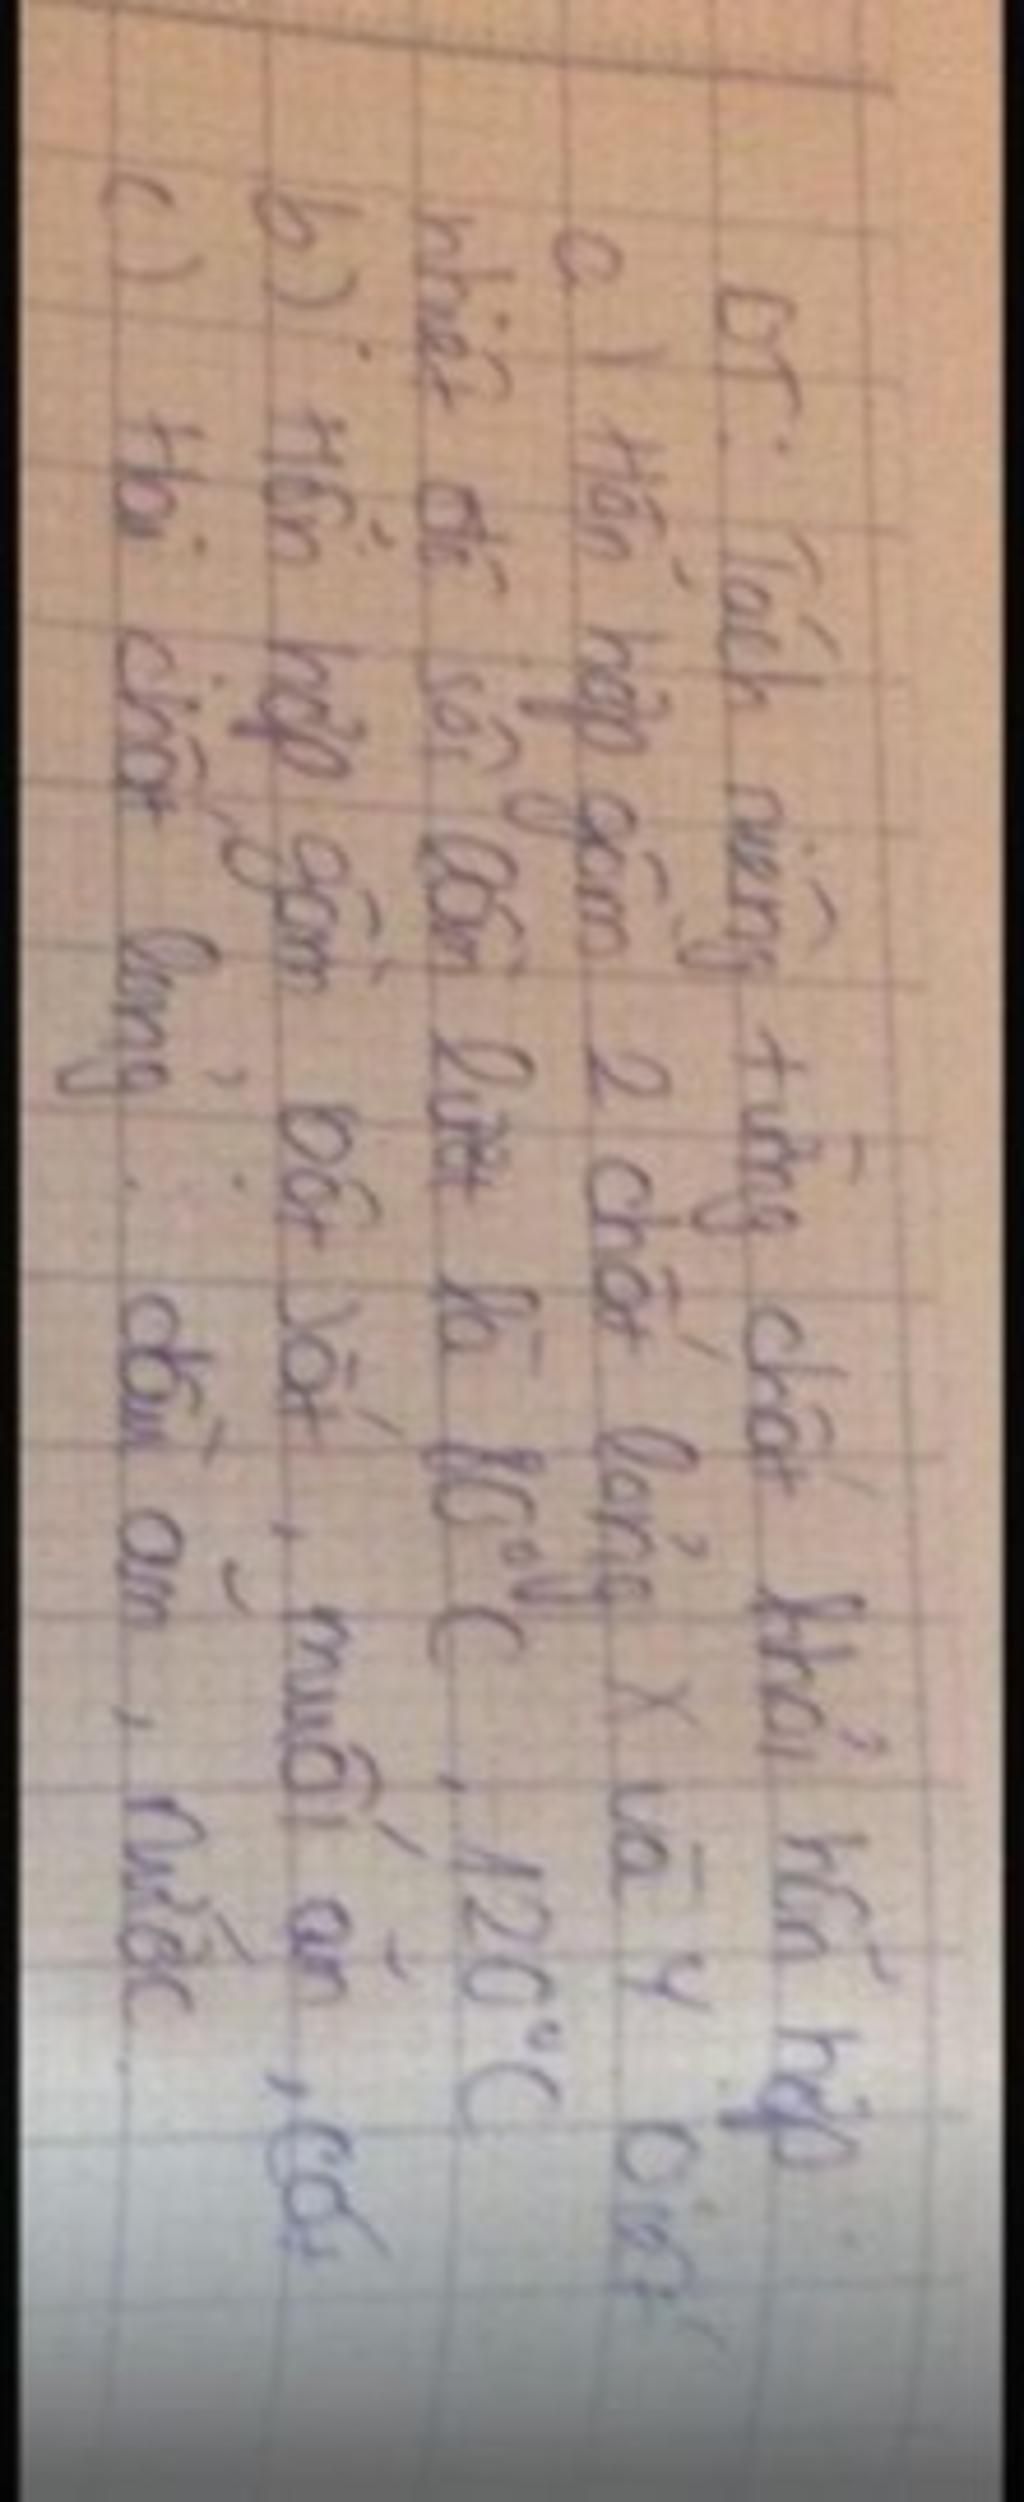 BT: Tách riêng từng chất khỏi hỗn hợp
a) Hỗn hợp gồm 2 chất lỏng X và Y biết
nhiệt độ sôi lần lượt là °C, 120°C
b) Hỗn hợp gồm bột sắt, muối ăn, cát
c) Hai chất lỏng: dầu ăn, nước